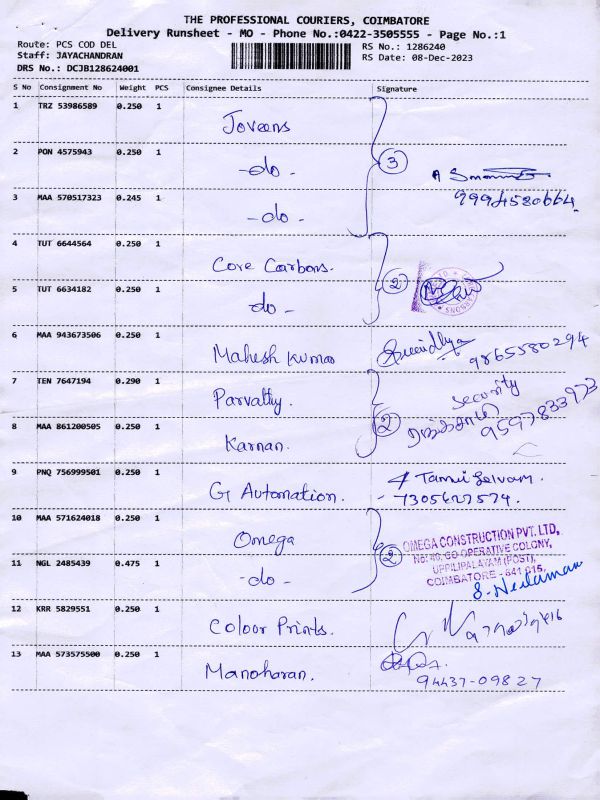 THE PROFESSIONAL COURIERS, COIMBATORE
Delivery Runsheet - MO - Phone No.:0422-3505555 - Page No.:1
Route: PCS COD DEL RS No.: 1286240
Staff: JAYACHANDRAN RS Date: 08-Dec-2023
DRS No.: DCJB128624001
S No Consignment No Weight PCS Consignee Details Signature
1 TRZ 53986589 0.250 1 Joveens
2 PON 4575943 0.250 1 -do- 3
3 MAA 570517323 0.245 1 -do- 9994580664
4 TUT 6644564 0.250 1 Core Carbons.
5 TUT 6634182 0.250 1 do - 2
6 MAA 943673506 0.250 1 Mahesh Kumar Sreenidhya 9865580294
7 TEN 7647194 0.290 1 Parvathy Security
8 MAA 861200505 0.250 1 Karnan. 2 9597833973
9 PNQ 756999501 0.250 1 G Automation. Tamil Selvam.
- 7305627574.
10 MAA 571624018 0.250 1 Omega
OMEGA CONSTRUCTION PVT. LTD,
No: 40, CO OPERATIVE COLONY,
UPPILIPALAYAM (POST),
COIMBATORE - 641 015.
11 NGL 2485439 0.475 1 -do- 2
12 KRR 5829551 0.250 1 Colour Prints.
13 MAA 573575500 0.250 1 Manoharan.
94437-09827